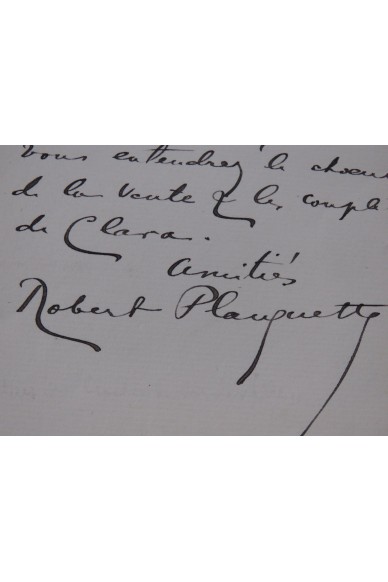 vous entendrez le choeur
de la vente & les couple
de Clara.
Amitiés
Robert Planquette